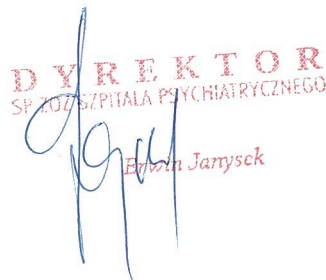 DYREKTOR
SP ZOZ SZPITALA PSYCHIATRYCZNEGO
Erwin Janysek